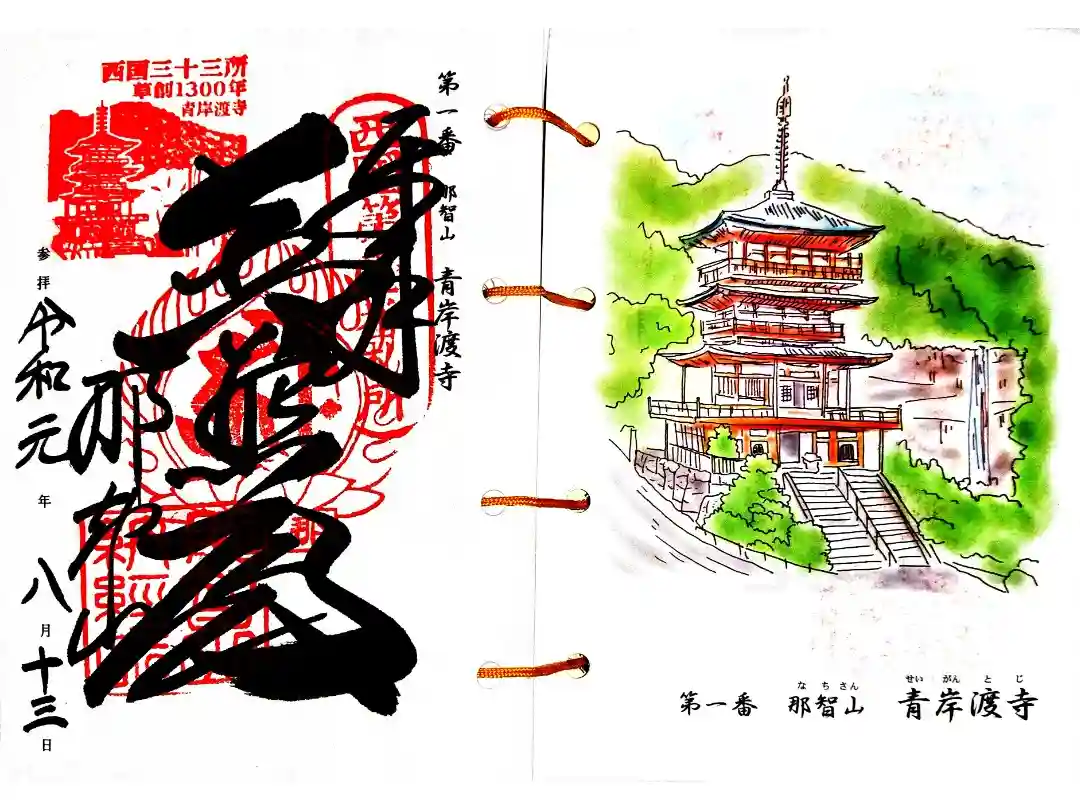 西国三十三所
草創1300年
青岸渡寺
第一番 那智山 青岸渡寺
普照殿
那智山
参拝 令和元年八月十三日
なちさん せいがんとじ
第一番 那智山 青岸渡寺